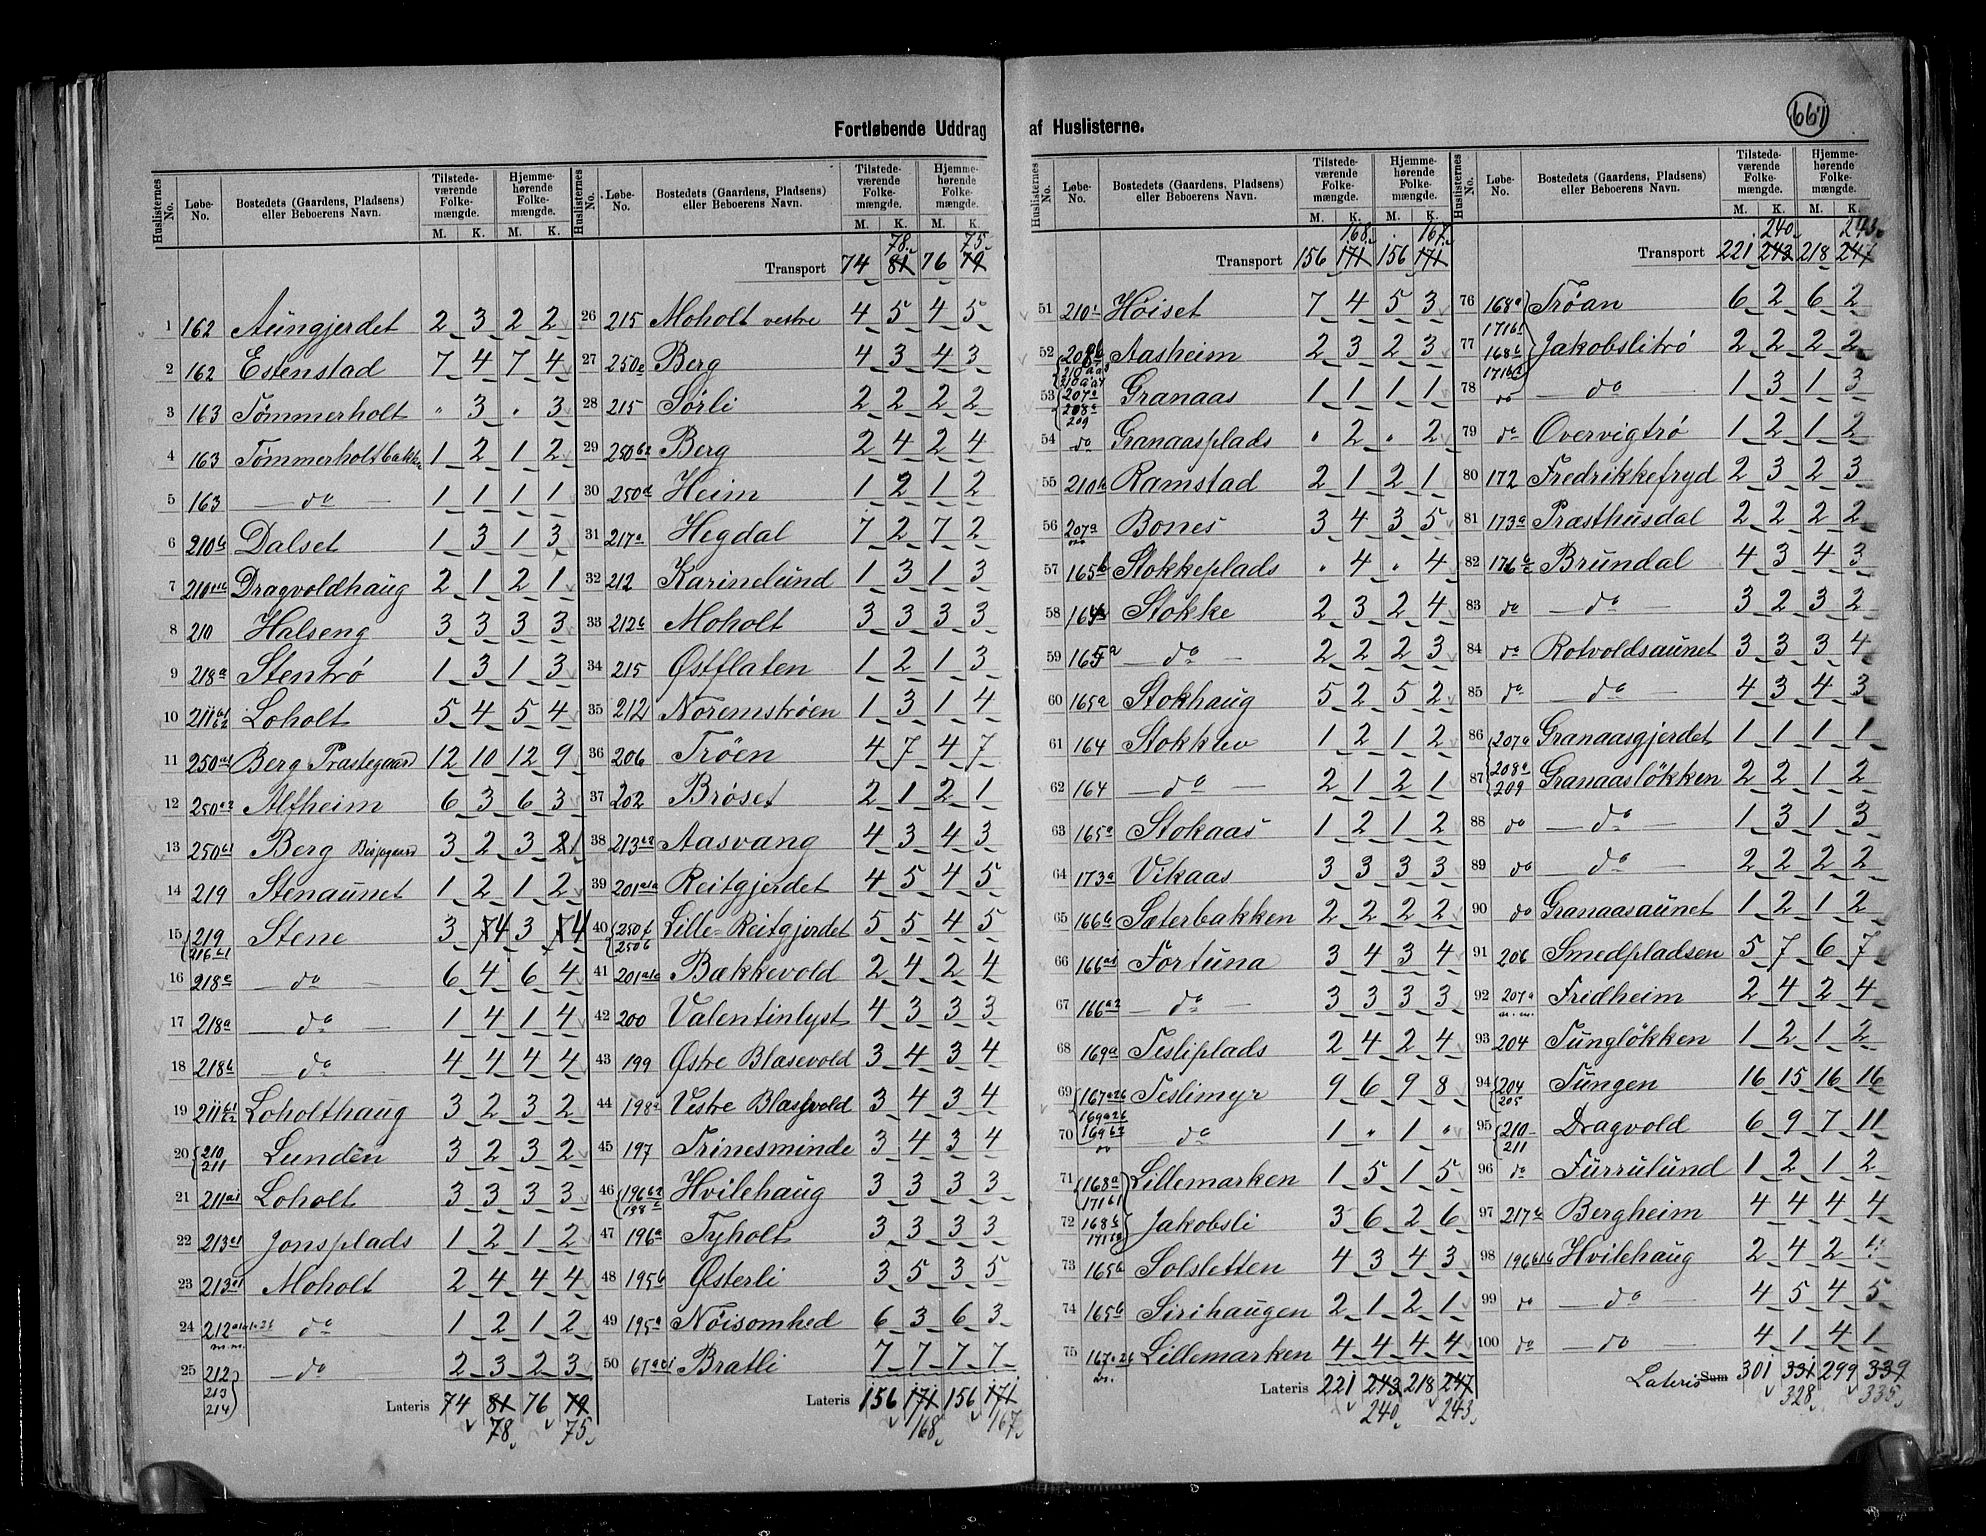 667
Fortløbende Uddrag af Huslisterne.
Huslisternes No. Løbe-No. Bostedets (Gaardens, Pladsens) eller Beboerens Navn. Tilstedeværende Folkemængde. Hjemmehørende Folkemængde. M. K. M. K.
1 162 Aungjerdet 2 3 2 2
2 162 Estenstad 7 4 7 4
3 163 Tømmerholt " 3 " 3
4 163 Tømmerholtbakke 1 2 1 2
5 163 — do — 1 1 1 1
6 210b Dalset 1 3 1 3
7 210 Dragvoldhaug 2 1 2 1
8 210 Halseng 3 3 3 3
9 218a Stentrø 1 3 1 3
10 211b1 b2 Loholt 5 4 5 4
11 250a1 Berg Præstegaard 12 10 12 9
12 250a2 Alfheim 6 3 6 3
13 250b1 Berg Bispegaard 3 2 3 1
14 219 Stenaunet 1 2 1 2
15 219 216b1 Stene 3 4 3 4
16 218c — do — 6 4 6 4
17 218a — do — 1 4 1 4
18 218b do 4 4 4 4
19 211b1 b2 Loholthaug 3 2 3 2
20 210 211 Lunden 3 2 3 2
21 211a1 Loholt 3 3 3 3
22 213a1 Jonsplads 1 2 1 2
23 213a1 Moholt 2 4 4 4
24 212 m.m. do 1 2 1 2
25 212 213 214 — do 2 3 2 3
Lateris 74 81 76 79
78 75
Huslisternes No. Løbe-No. Bostedets (Gaardens, Pladsens) eller Beboerens Navn. Tilstedeværende Folkemængde. Hjemmehørende Folkemængde. M. K. M. K.
78 75
Transport 74 81 76 79
26 215 Moholt vestre 4 5 4 5
27 250e Berg 4 3 4 3
28 215 Sørli 2 2 2 2
29 250b2 Berg 2 4 2 4
30 250d Heim 1 2 1 2
31 217a Hegdal 7 2 7 2
32 212 Karinelund 1 3 1 3
33 212b Moholt 3 3 3 3
34 215 Østflaten 1 2 1 3
35 212 Noremstrøen 1 3 1 4
36 206 Trøen 4 7 4 7
37 202 Brøset 2 1 2 1
38 213a2 Aasvang 4 3 4 3
39 201a1a Reitgjerdet 4 5 4 5
40 250f 250b Lille-Reitgjerdet 5 5 4 5
41 201a1b Bakkevold 2 4 2 4
42 200 Valentinlyst 4 3 3 3
43 199 Østre Blasevold 3 4 3 4
44 198a Vestre Blasevold 3 4 3 4
45 197 Trinesminde 3 4 3 4
46 196b2 198c Hvilehaug 3 3 3 3
47 196a Tyholt 3 3 3 3
48 195b Østerli 3 5 3 5
49 195a Nøisomhed 6 3 6 3
50 67 Bratli 7 7 7 7
Lateris 156 171 156 171
168 167
Huslisternes No. Løbe-No. Bostedets (Gaardens, Pladsens) eller Beboerens Navn. Tilstedeværende Folkemængde. Hjemmehørende Folkemængde. M. K. M. K.
168 167
Transport 156 171 156 171
51 210i Høiset 7 4 5 3
52 208b Aasheim 2 3 2 3
53 207a 208a 209 Granaas 1 1 1 1
54 do Granaasplads " 2 " 2
55 210b Ramstad 2 1 2 1
56 207a Bones 3 4 3 5
57 165b Stokkeplads " 4 " 4
58 164 Stokke 2 3 2 4
59 165a — do — 2 2 2 3
60 165a Stokhaug 5 2 5 2
61 164 Stokklev 1 2 1 2
62 164 — do — 2 1 2 1
63 165a Stokaas 1 2 1 2
64 173a Vikaas 3 3 3 3
65 166b Sæterbakken 2 2 2 2
66 166a1 Fortuna 3 4 3 4
67 166a2 — do — 3 3 3 3
68 169a Tesliplads 2 4 2 4
69 167a2b 169a2b Teslimyr 9 6 9 8
70 169b2 do 1 " 1 "
71 168a 171b1 Lillemarken 1 5 1 5
72 168b 171b2 Jakobsli 3 6 2 6
73 165b Solsletten 4 3 4 3
74 165b Sirihaugen 2 1 2 1
75 167a2b Lillemarken 4 4 4 4
Lateris 221 243 218 247
240 243
Huslisternes No. Løbe-No. Bostedets (Gaardens, Pladsens) eller Beboerens Navn. Tilstedeværende Folkemængde. Hjemmehørende Folkemængde. M. K. M. K.
240 243
Transport 221 243 218 247
76 168a 171b1 Trøan 6 2 6 2
77 168b 171b2 Jakobslitrø 2 2 2 2
78 do — do — 1 3 1 3
79 do Overvigtrø 1 2 1 2
80 172 Fredrikkefryd 2 3 2 3
81 173a Præsthusdal 2 2 2 2
82 176b Brundal 4 3 4 3
83 do — do — 3 2 3 2
84 do Rotvoldsaunet 3 3 3 4
85 do — do — 4 3 4 3
86 207a Granaasgjerdet 1 1 1 1
87 208a 209 Granaasløkken 2 2 1 2
88 do — do — 1 3 1 3
89 do do — 2 2 2 2
90 do Granaasaunet 1 2 1 2
91 206 Smedpladsen 5 7 6 7
92 207a m.m. Fridheim 2 4 2 4
93 204 Tungløkken 1 2 1 2
94 204 205 Tungen 16 15 16 16
95 210 211 Dragvold 6 9 7 11
96 do Furrulund 1 2 1 2
97 217b Bergheim 4 4 4 4
98 196b1b Hvilehaug 2 4 2 4
99 do — do — 4 5 4 5
100 do — do 4 1 4 1
Lateris Sum 301 331 299 339
328 335